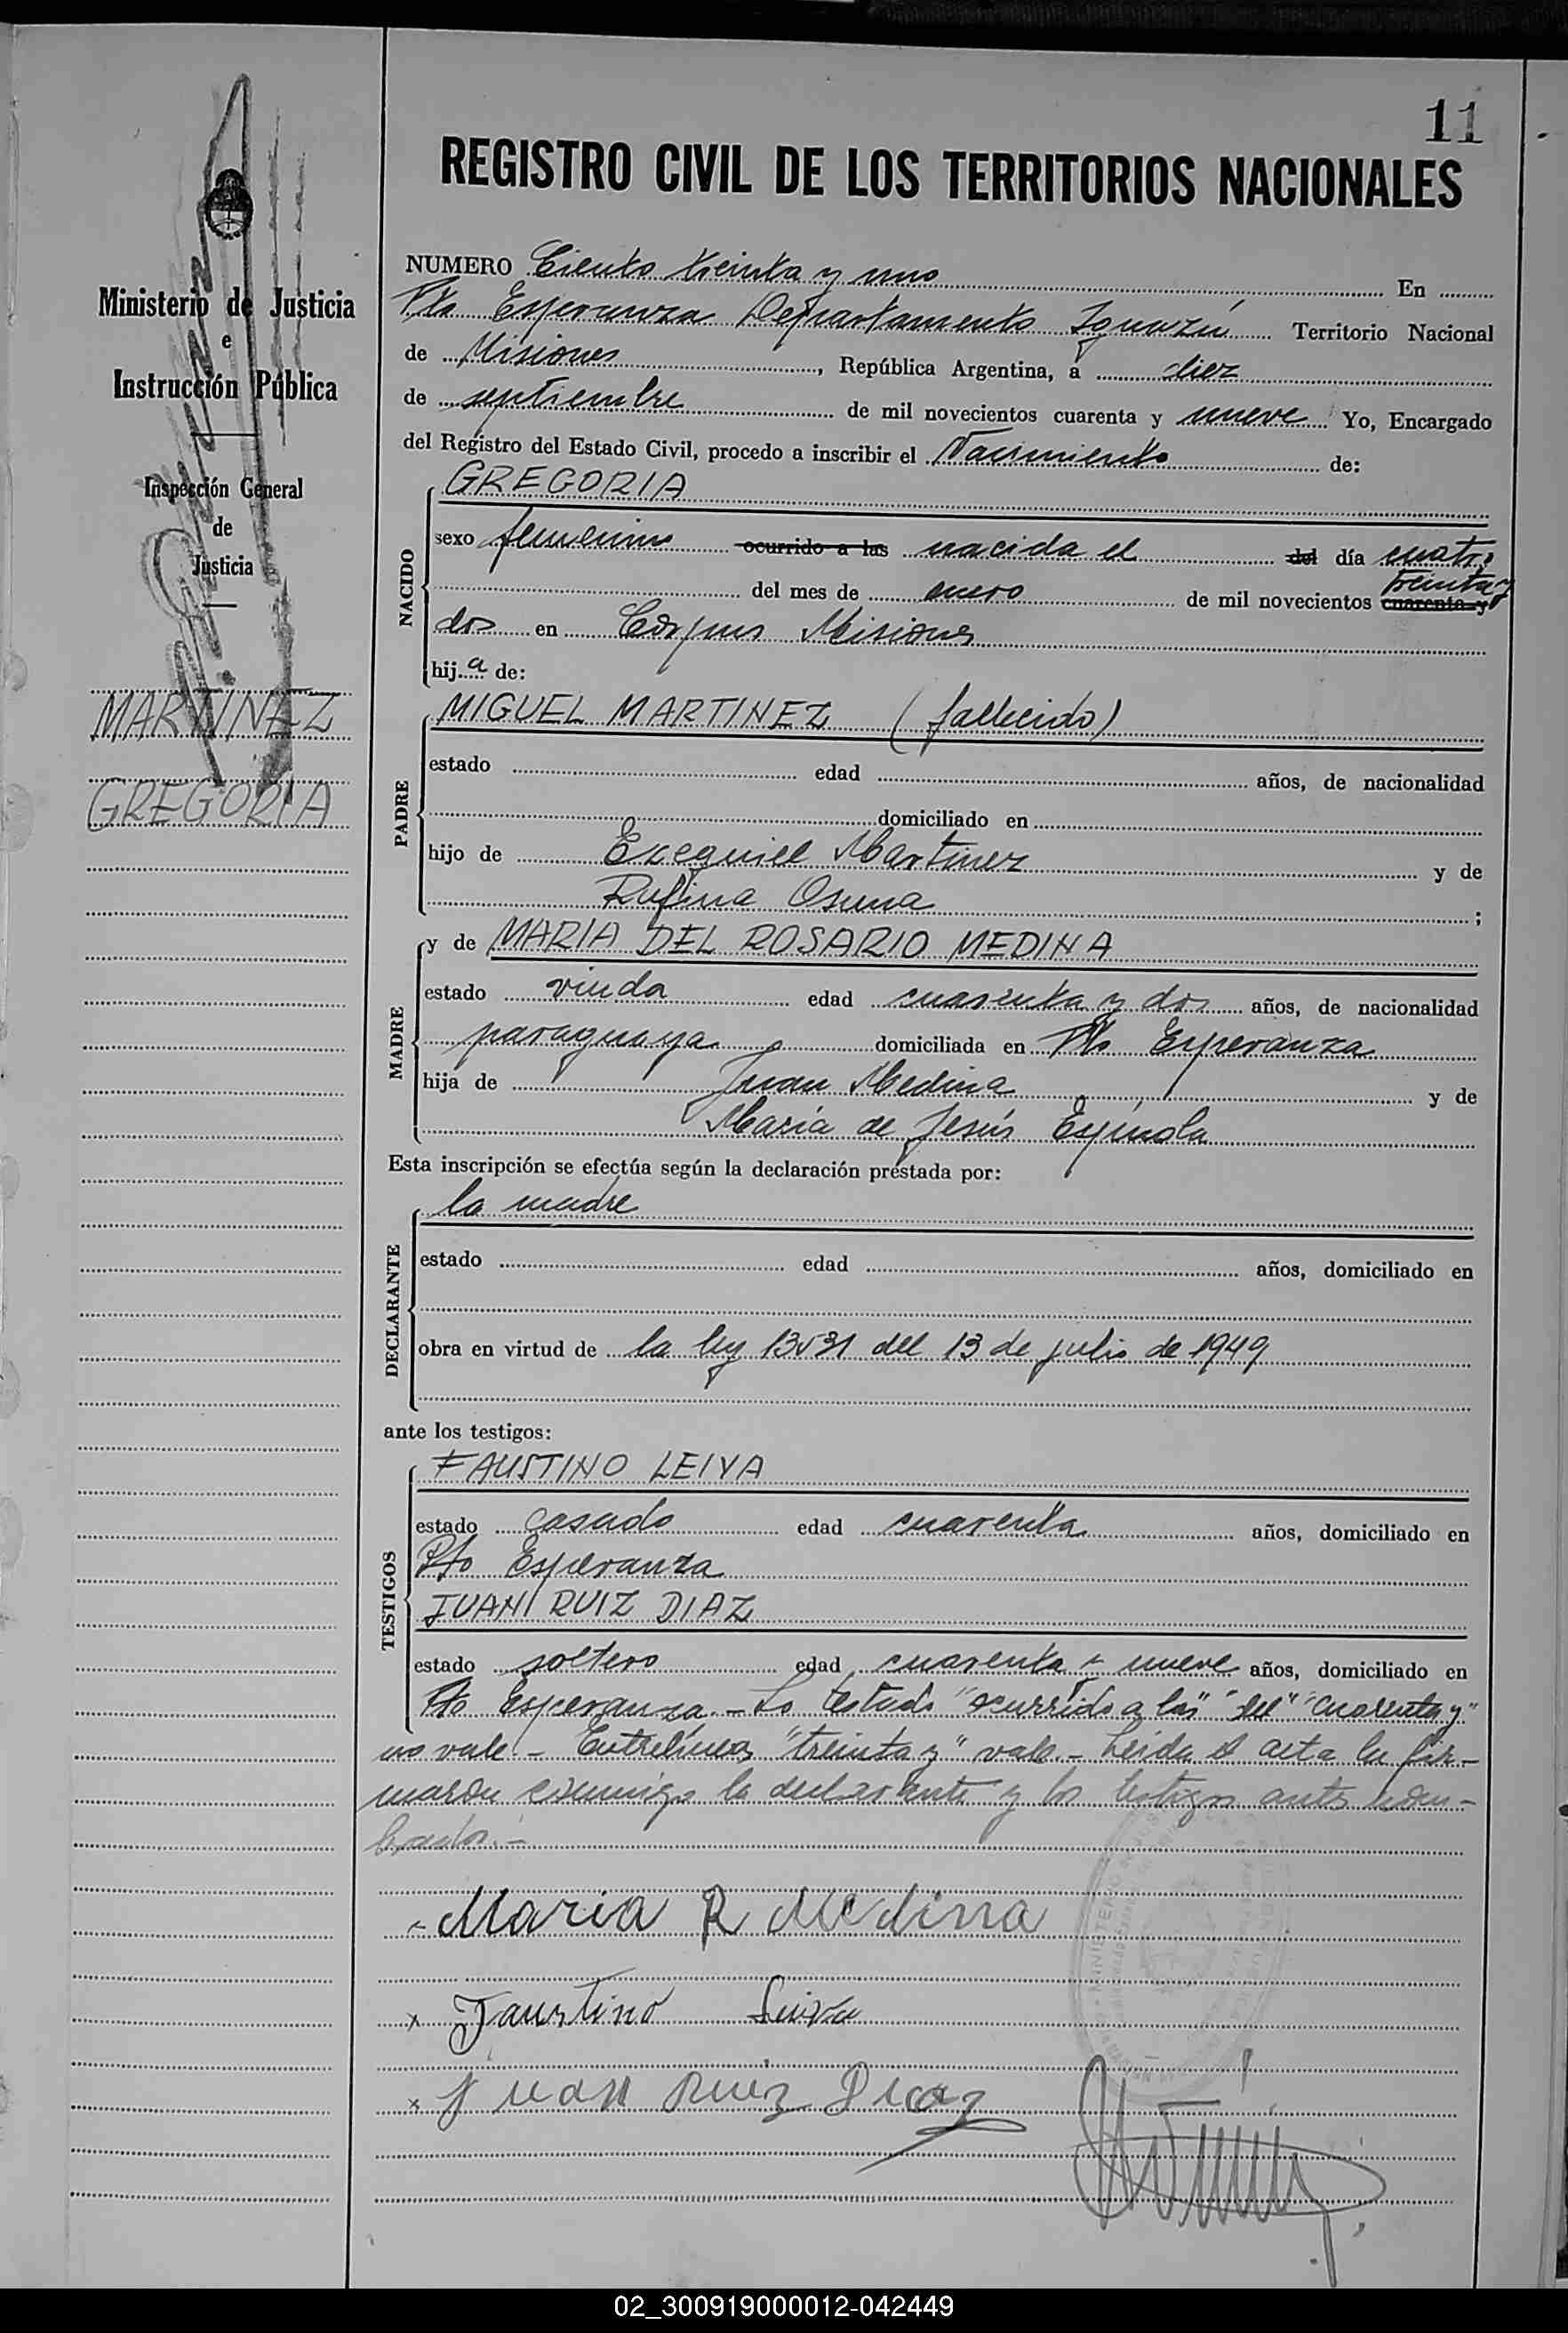 11
REGISTRO CIVIL DE LOS TERRITORIOS NACIONALES
Ministerio de Justicia
e
Instrucción Pública
Inspección General
de
Justicia
MARTINEZ
GREGORIA
NUMERO Ciento treinta y uno En
Pto Esperanza Departamento Iguazú Territorio Nacional
de Misiones, República Argentina, a diez
de septiembre de mil novecientos cuarenta y nueve Yo, Encargado
del Registro del Estado Civil, procedo a inscribir el Nacimiento de:
NACIDO
GREGORIA
sexo femenino ocurrido a las nacida el del día cuatro
treinta y
del mes de enero de mil novecientos cuarenta y
dos en Corpus Misiones
hija de:
PADRE
MIGUEL MARTINEZ (fallecido)
estado edad años, de nacionalidad
domiciliado en
hijo de Ezequiel Martinez y de
Rufina Osuna ;
MADRE
y de MARIA DEL ROSARIO MEDINA
estado viuda edad cuarenta y dos años, de nacionalidad
paraguaya domiciliada en Pto Esperanza
hija de Juan Medina y de
María de Jesús Espínola
Esta inscripción se efectúa según la declaración prestada por:
DECLARANTE
la madre
estado edad años, domiciliado en
obra en virtud de la ley 13531 del 13 de julio de 1949
ante los testigos:
TESTIGOS
FAUSTINO LEIVA
estado casado edad cuarenta años, domiciliado en
Pto Esperanza
JUAN RUIZ DIAZ
estado soltero edad cuarenta y nueve años, domiciliado en
Pto Esperanza.- Lo testado "ocurrido a las" "del" "cuarenta y"
no vale.- Entrelíneas "treinta y" vale.- Leida el acta la fir-
maron conmigo la declarante y los testigos antes nom-
brados.-
Maria R Medina
x Faustino Leiva
x Juan Ruiz Diaz
02_300919000012-042449